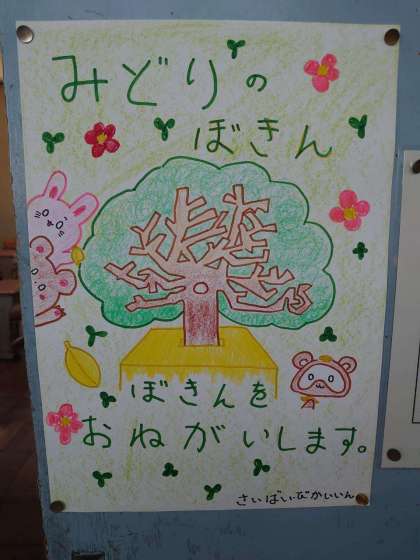 みどりの
ぼきん
ぼきんを
おねがいします。
さいばいびかいいん